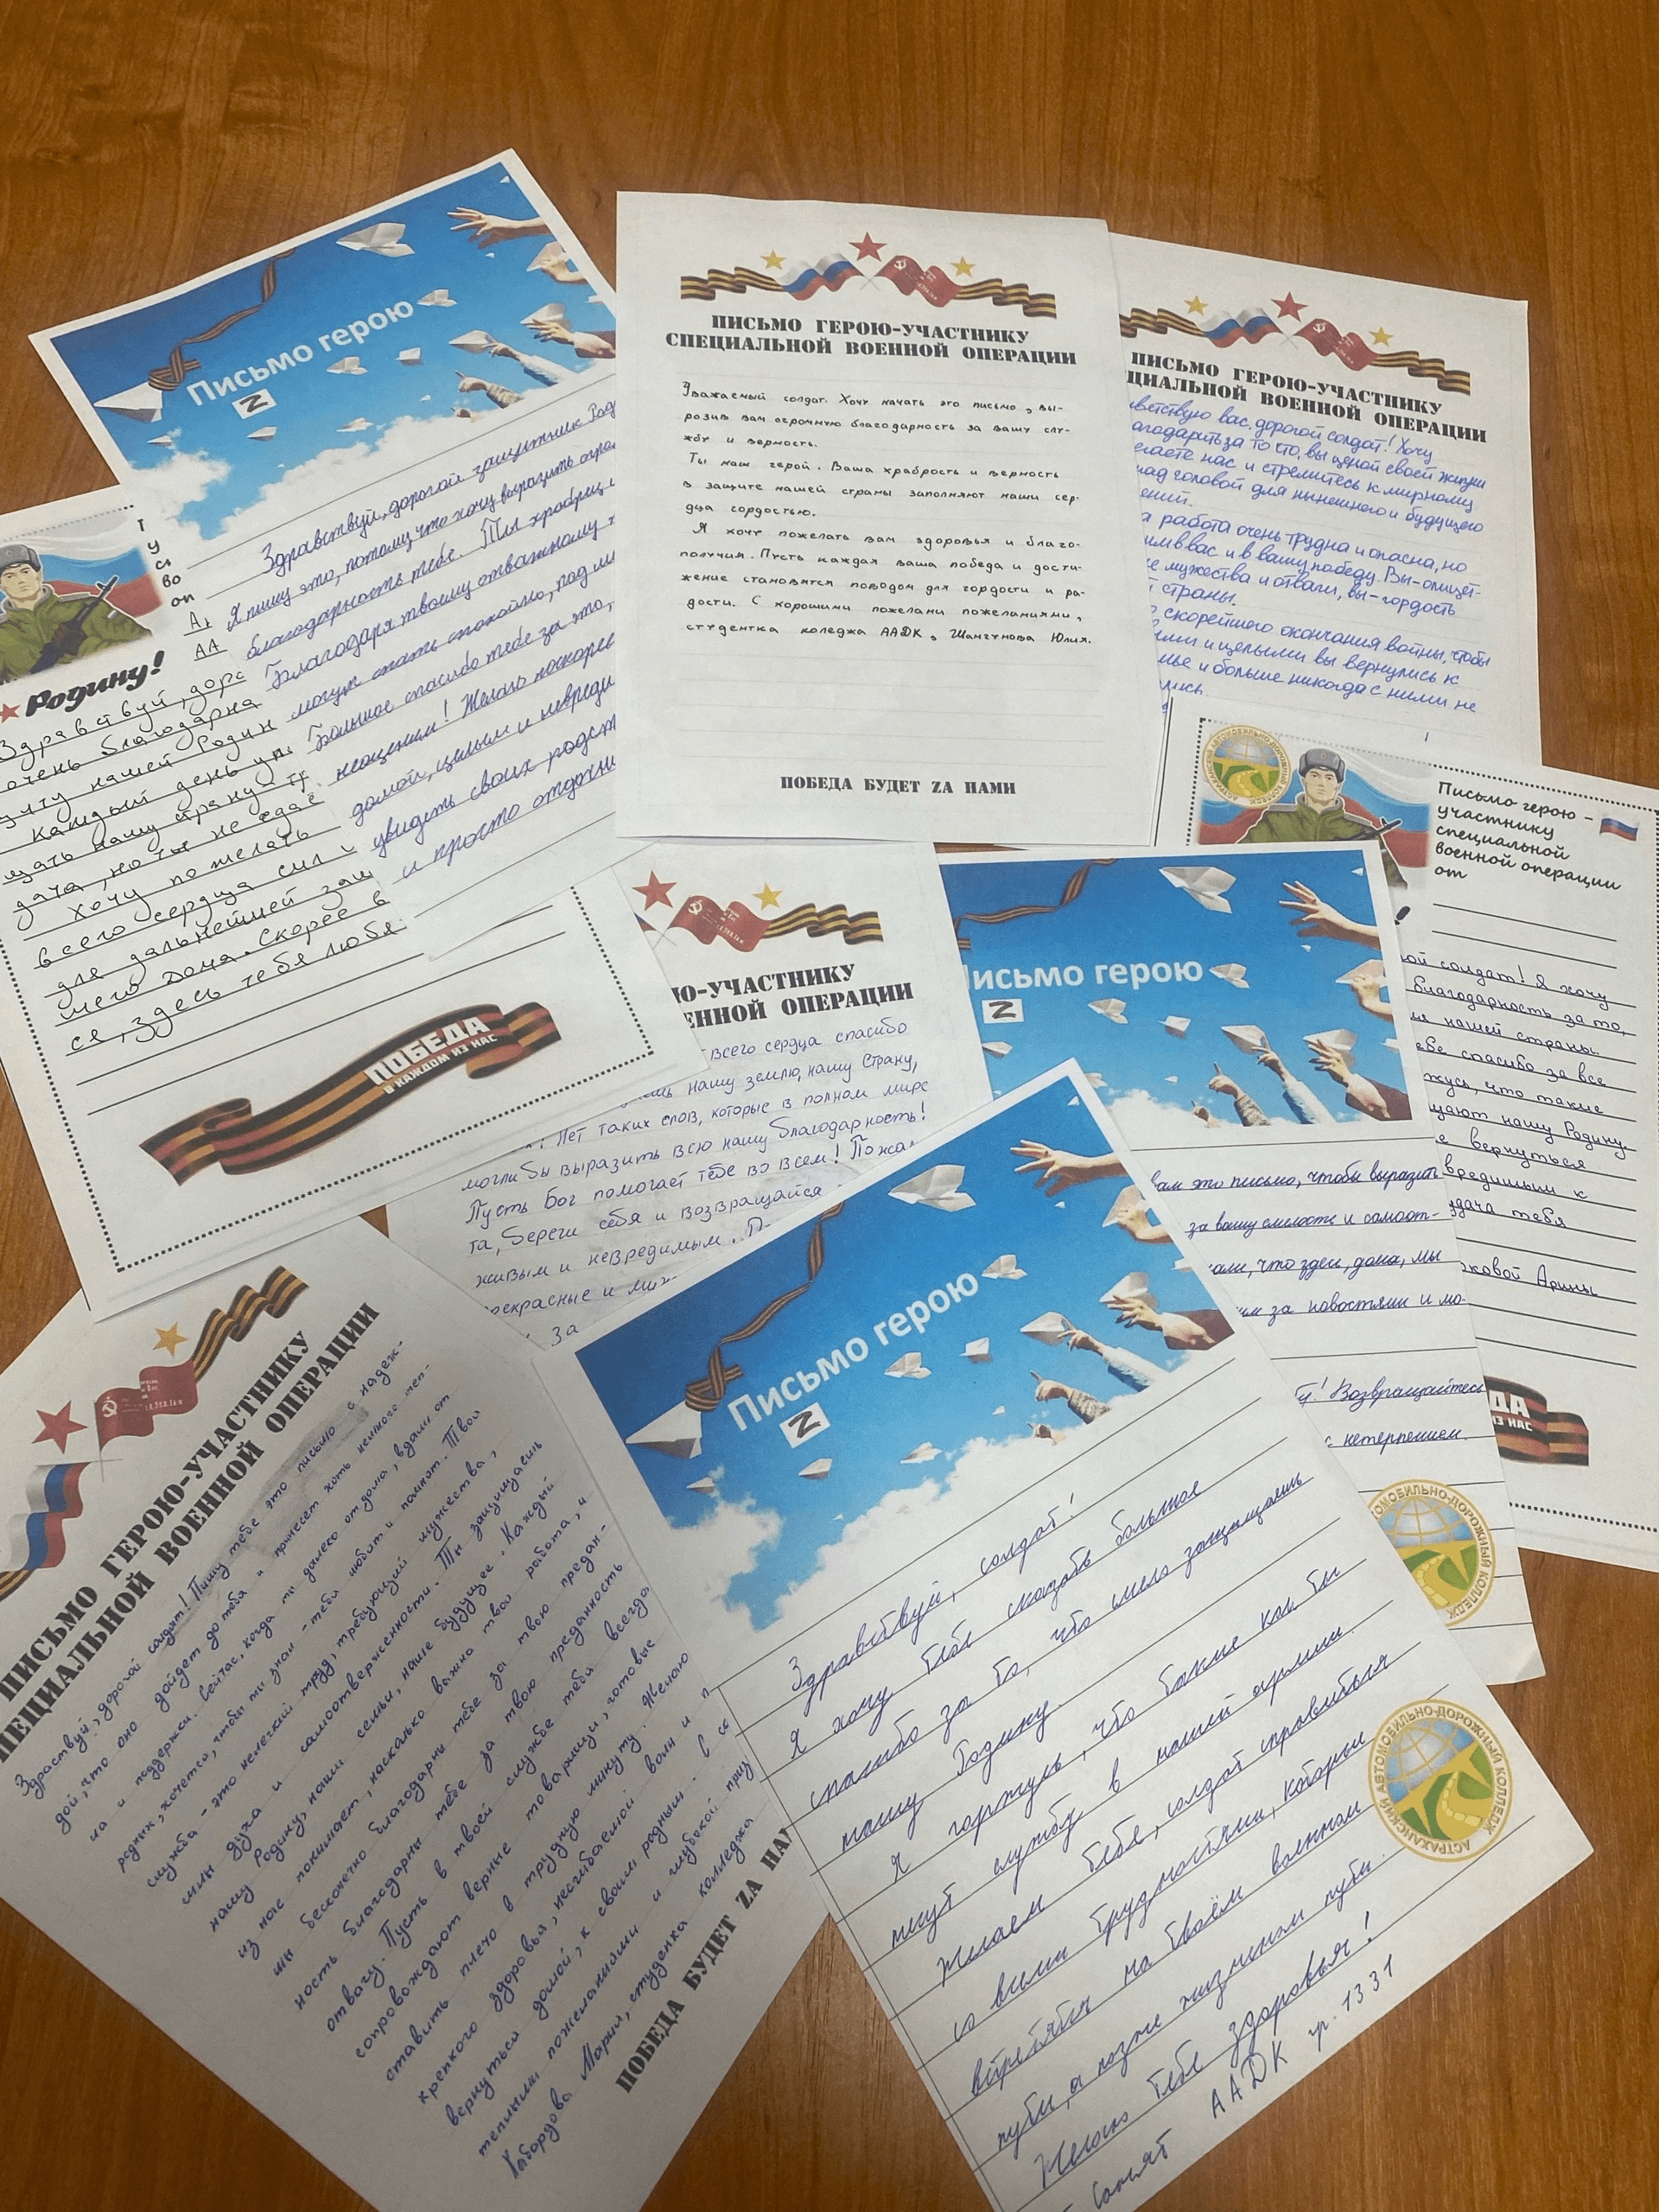 Письмо герою
Z
Здравствуй, дорогой защитник
Я пишу это, потому что хочу выразить
благодарность тебе. Ты храбрец
Благодаря твоему отважному
могут спать спокойно, под
Большое спасибо тебе за это,
неоценим! Желаю поскорее
домой, целым и невреди
увидеть своих родст
и просто отдохн
Родину!
Здравствуй, доро
очень благодарна
щиту нашей Родин
Каждый день
щать нашу страну
дача, но ты не сдаё
Хочу пожелать
всего сердца сил
для дальнейшей защ
шего дома. Скорее в
ся, здесь тебя любя
ПОБЕДА
В КАЖДОМ ИЗ НАС
ПИСЬМО ГЕРОЮ-УЧАСТНИКУ
СПЕЦИАЛЬНОЙ ВОЕННОЙ ОПЕРАЦИИ
Уважаемый солдат. Хочу начать это письмо, вы-
розив вам огромную благодарность за вашу слу-
жбу и верность.
Ты наш герой. Ваша храбрость и верность
в защите нашей страны заполняют наши сер-
дца гордостью.
Я хочу пожелать вам здоровья и благо-
получия. Пусть каждая ваша победа и дости-
жение становятся поводом для гордости и ра-
дости. С хорошими пожелани пожеланиями,
студентка коледжа ААДК, Шангунова Юлия.
ПОБЕДА БУДЕТ ZА НАМИ
ПИСЬМО ГЕРОЮ-УЧАСТНИКУ
ЦИАЛЬНОЙ ВОЕННОЙ ОПЕРАЦИИ
ветствую вас, дорогой солдат! Хочу
агодарить за то что, вы ценой своей жизни
егаете нас и стремитесь к мирному
над головой для нынешнего и будущего
ений.
а работа очень трудна и опасна, но
им в вас и в вашу победу. Вы-олицет-
ие мужества и отваги, вы-гордость
й страны.
скорейшего окончания войны, чтобы
ыми и целыми вы вернулись к
мье и больше никогда с ними не
ись
Письмо герою -
участнику
специальной
военной операции
от
ой солдат! Я хочу
благодарность за то,
нашей страны.
ебе спасибо за все
жусь, что такие
щают нашу Родину.
е вернуться
вредимым к
дача тебя
ковой Арины
ДА
ИЗ НАС
Ю-УЧАСТНИКУ
ЕННОЙ ОПЕРАЦИИ
всего сердца спасибо
нашу землю, нашу Страну,
Нет таких слов, которые в полном мире
могли бы выразить всю нашу благодарность!
Пусть Бог помогает тебе во всем! Пожа
та, береги себя и возвращайся
живым и невредимым.
рекрасные и
За
исьмо герою
Z
вам это письмо, чтобы выразить
за вашу смелость и самоот-
нали, что здесь, дома, мы
им за новостями и мо-
! Возвращайтесь
с нетерпением.
АВТОМОБИЛЬНО-ДОРОЖНЫЙ КОЛЛЕДЖ
ПИСЬМО ГЕРОЮ-УЧАСТНИКУ
ПЕЦИАЛЬНОЙ ВОЕННОЙ ОПЕРАЦИИ
Здравствуй, дорогой солдат! Пишу тебе это письмо с надеж-
дой, что оно дойдет до тебя и принесет хоть немного теп-
ла и поддержки. Сейчас, когда ты далеко от дома, вдали от
родных, хочется, чтобы ты знал - тебя любят и помнят. Твоя
служба - это нелегкий труд, требующий мужества,
силы духа и самоотверженности. Ты защищаешь
нашу Родину, наши семьи, наше будущее. Каждый
из нас понимает, насколько важна твоя работа, и
мы бесконечно благодарны тебе за твою предан-
ность
благодарны тебе за твою преданность
отвагу. Пусть в твоей службе тебя всегда
сопровождают верные товарищи, готовые
ставить плечо в трудную минуту. Желаю
крепкого здоровья, несгибаемой воли и
вернуться домой, к своим родным. С
теплыми пожеланиями и глубокой приз
Мария, студенка колледжа
ПОБЕДА БУДЕТ ZА НАМ
Письмо герою
Z
Здравствуй, солдат!
Я хочу тебе сказать большое
спасибо за то, что смело защищаешь
нашу Родину.
Я горжусь, что такие как ты
несут службу в нашей армии.
Желаем тебе, солдат справиться
со всеми трудностями, которые
встретятся на твоём военном
пути, а позже жизненном пути.
Желаю тебе здоровья!
ААДК гр. 1331
АСТРАХАНСКИЙ АВТОМОБИЛЬНО-ДОРОЖНЫЙ КОЛЛЕДЖ